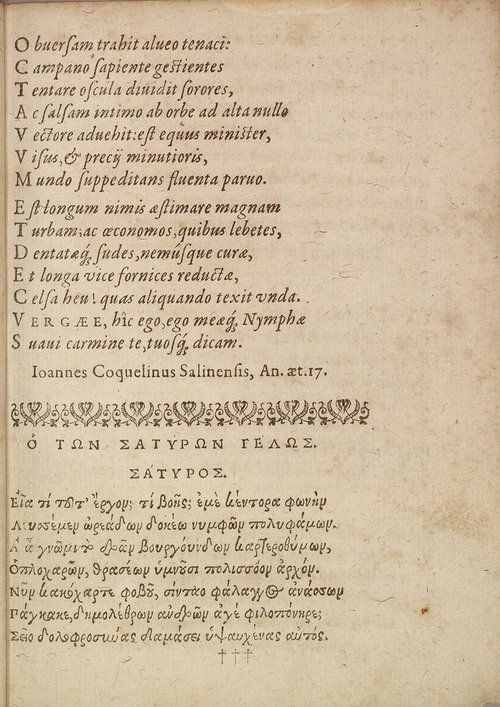 O buersam trahit alueo tenaci:
C ampano sapiente gestientes
T entare oscula diuidit sorores,
A c salsam intimo ab orbe ad alta nullo
V ectore aduehit: est equus minister,
V isus, & precij minutioris,
M undo suppeditans fluenta paruo.
E st longum nimis æstimare magnam
T urbam; ac œconomos, quibus lebetes,
D entatæq́, sudes, nemúsque curæ,
E t longa vice fornices reductæ,
C elsa heu! quas aliquando texit vnda.
V ERGÆE, hîc ego, ego meæq́, Nymphæ
S uaui carmine te, tuosq́, dicam.
Ioannes Coquelinus Salinensis, An. æt. 17.
Ὁ ΤΩΝ ΣΑΤΥΡΩΝ ΓΕΛΩΣ.
ΣΑΤΥΡΟΣ.
Εἶα τί τοῦτ' ἔργον; τί βοῆς; ἐμὲ κέντορα φωνὴν
ὀρεάδων δοκέω νυμφῶν πολυφάμων.
Βουργούνδων καρτεροθύμων,
Ὁπλοχαρῶν, θρασέων ὑμνοῦσι πολισσόον ἀρχόν.
Νῦν φόβου, φάλαγγος
Πάγκακε, δημολέθρων ἀνδρῶν ἀγὲ φιλοπόνηρε;
Σεῖο δολοφροσύνας δαμάσει ὑψαύχενας αὐτός.
†††